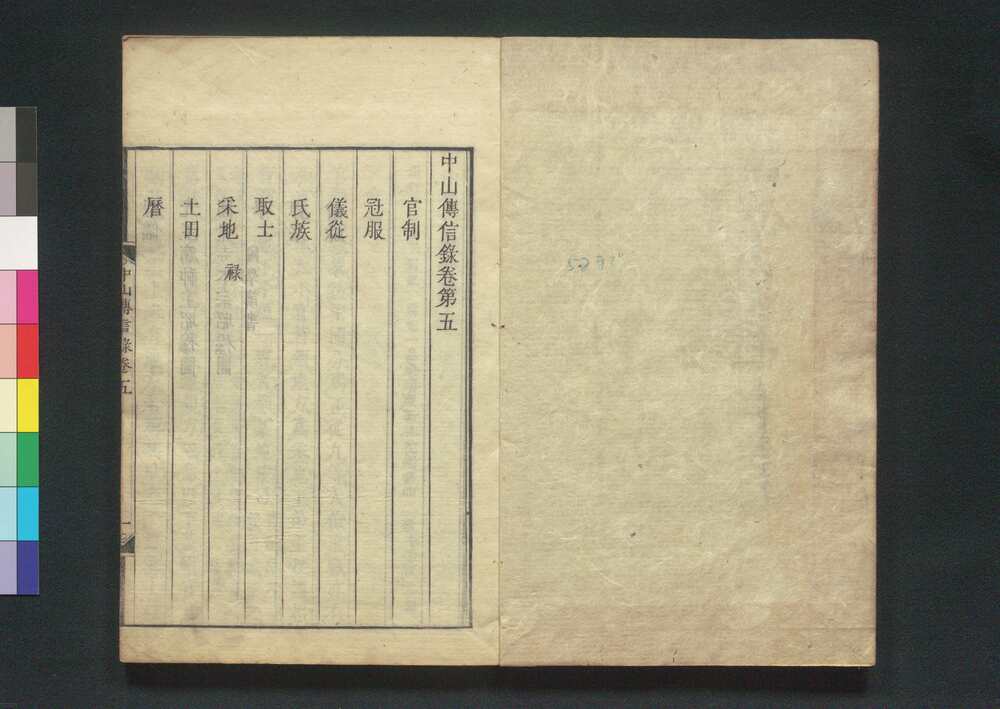 中山傳信錄卷第五
官制
冠服
儀從
氏族
取士
采地 祿
土田
曆
中山傳信錄卷五
一